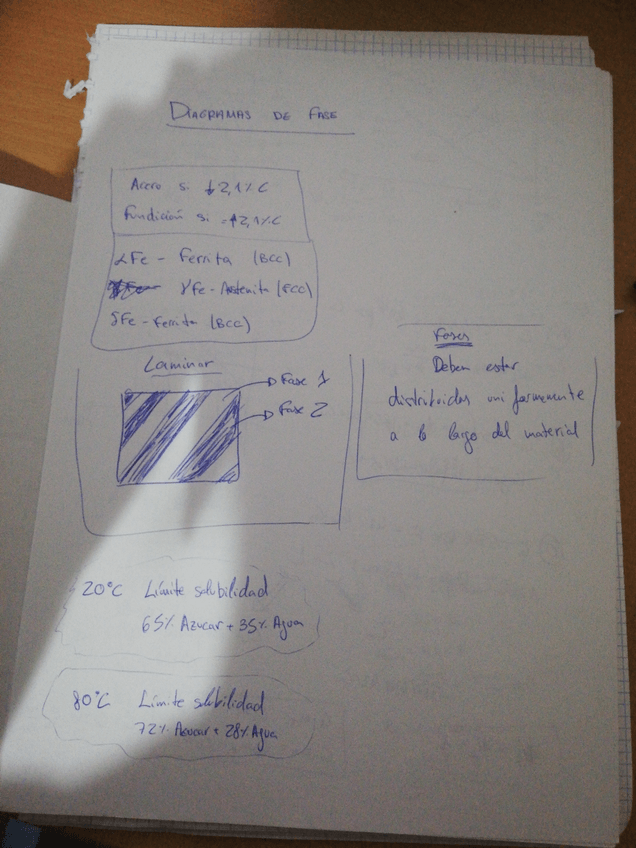 DIAGRAMAS DE FASE
Acero si ↓2,1% C
Fundición si ↑2,1% C
αFe - Ferrita (BCC)
γFe - Austenita (FCC)
δFe - Ferrita (BCC)
Laminar
Fase 1
Fase 2
Fases
Deben estar
distribuidas uniformemente
a lo largo del material
20°C Límite solubilidad
65% Azucar + 35% Agua
80°C Límite solubilidad
72% Azucar + 28% Agua